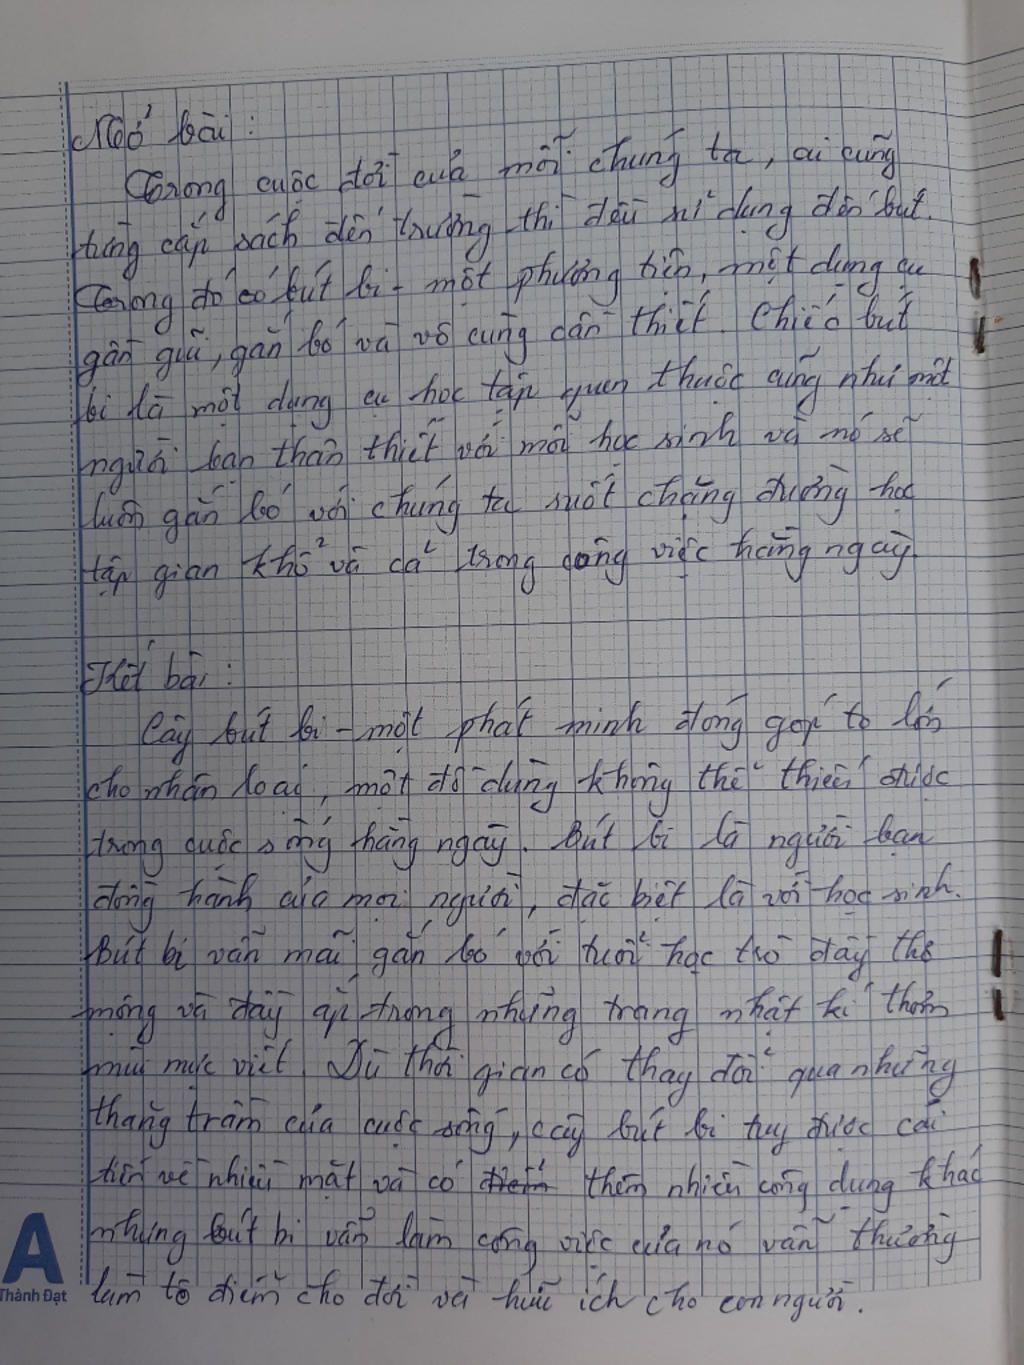 Mở bài :
Trong cuộc đời của mỗi chúng ta, ai cũng
từng cắp sách đến trường thì đều sử dụng đến bút.
Trong đó có bút bi - một phương tiện, một dụng cụ
gần gũi, gắn bó và vô cùng cần thiết. Chiếc bút
bi là một dụng cụ học tập quen thuộc cũng như một
người bạn thân thiết với mỗi học sinh và nó sẽ
luôn gắn bó với chúng ta suốt chặng đường học
tập gian khổ và cả trong công việc hằng ngày.
Kết bài :
Cây bút bi - một phát minh đóng góp to lớn
cho nhân loại, một đồ dùng không thể thiếu được
trong cuộc sống hằng ngày. Bút bi là người bạn
đồng hành của mọi người, đặc biệt là với học sinh.
Bút bi vẫn mãi gắn bó với tuổi học trò đầy thơ
mộng và đầy ắp trong những trang nhật kí thơm
mùi mực viết. Dù thời gian có thay đổi qua những
thăng trầm của cuộc sống, cây bút bi tuy được cải
tiến về nhiều mặt và có thêm nhiều công dụng khác
nhưng bút bi vẫn làm công việc của nó vẫn thường
làm tô điểm cho đời và hữu ích cho con người.
A
Thành Đạt